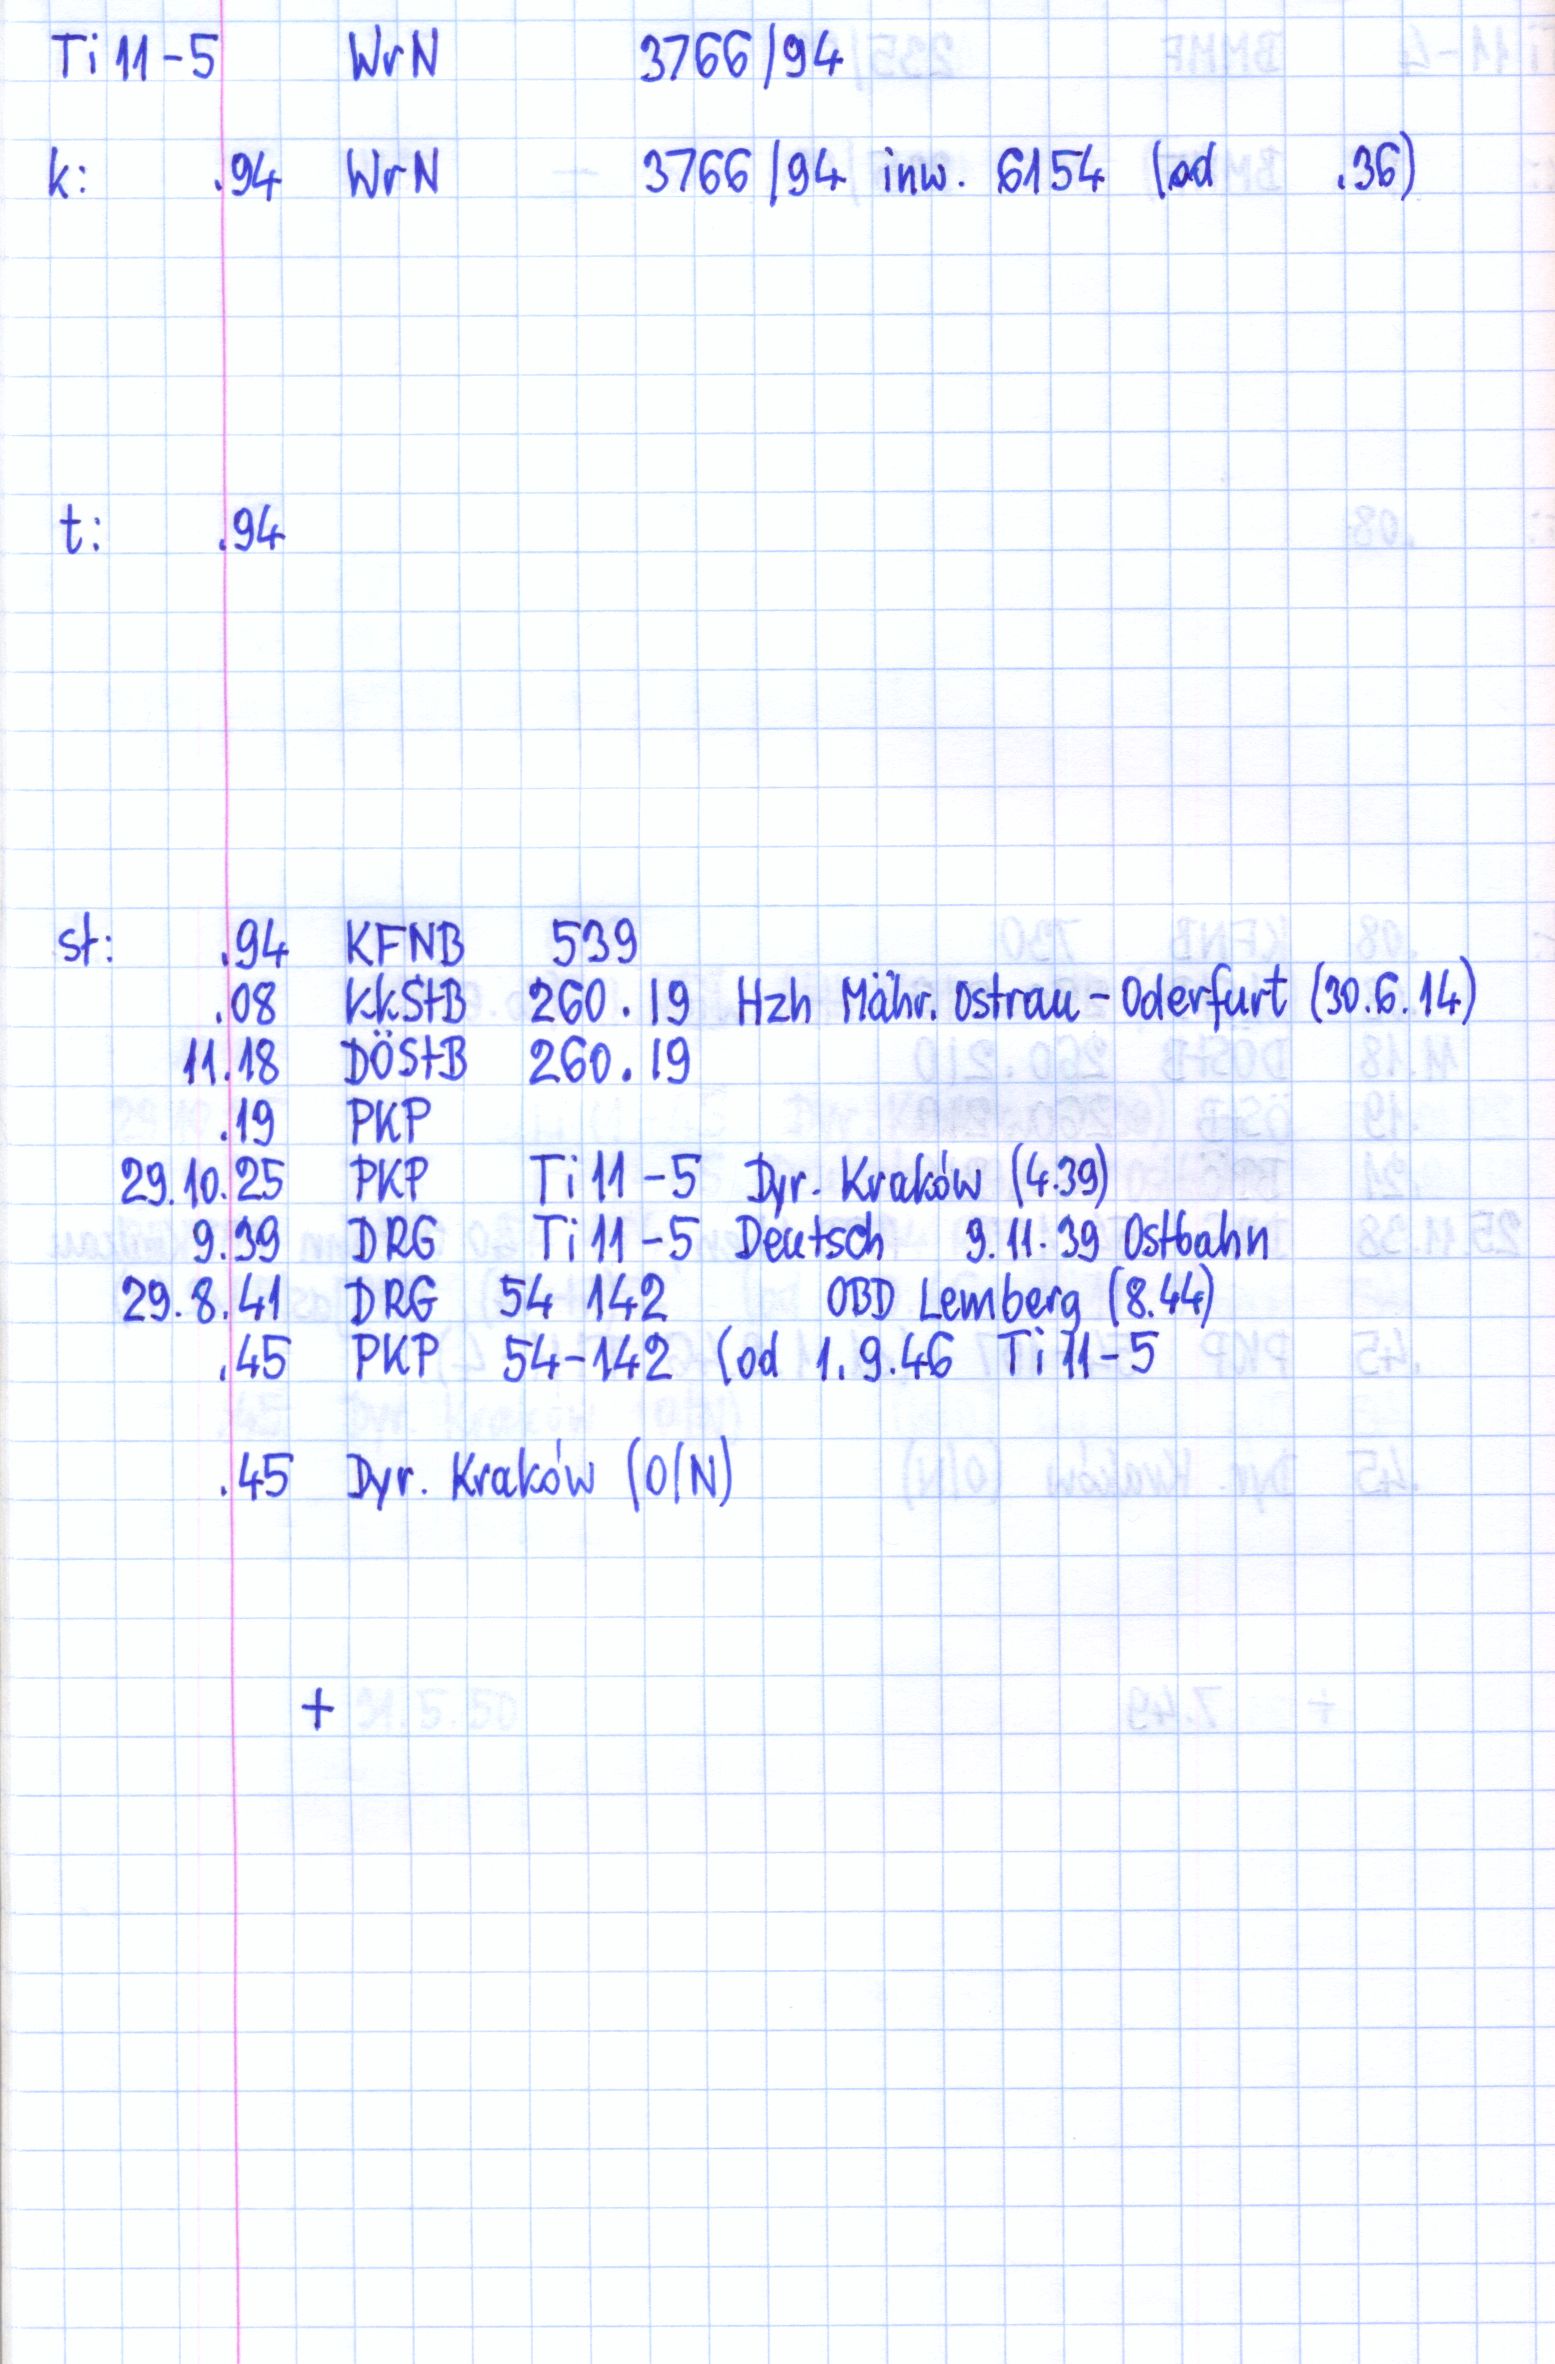 Ti 11-5 WrN 3766/94
k: .94 WrN 3766/94 inw. 6154 (od .36)
t: .94
st: .94 KFNB 539
.08 kkStB 260.19 Hzh Mähr. Ostrau-Oderfurt (30.6.14)
11.18 DÖStB 260.19
.19 PKP
29.10.25 PKP Ti 11-5 Dyr. Kraków (4.39)
9.39 DRG Ti 11-5 Deutsch 9.11.39 Ostbahn
29.8.41 DRG 54 142 OBD Lemberg (8.44)
.45 PKP 54-142 (od 1.9.46 Ti 11-5
.45 Dyr. Kraków (O/N)
+